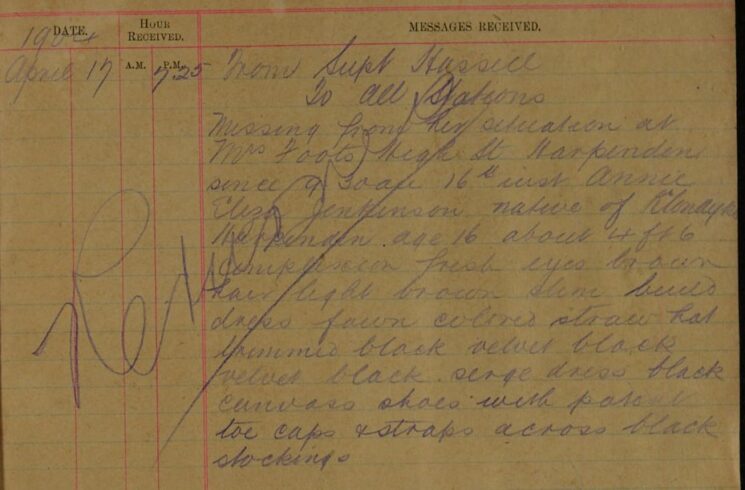 DATE. HOUR RECEIVED. MESSAGES RECEIVED.
1904
April 17 A.M. P.M. 7.25 From Supt Hassell
To all Stations
Missing from her situation at
Mrs Foots High St Harpenden
since 9 30am 16th inst Annie
Eliza Jenkinson native of Klondyke
Harpenden age 16 about 4 ft 6
complexion fresh eyes brown
hair light brown slim build
dress fawn colored straw hat
trimmed black velvet black
velvet black serge dress black
canvass shoes with patent
toe caps & straps across black
stockings